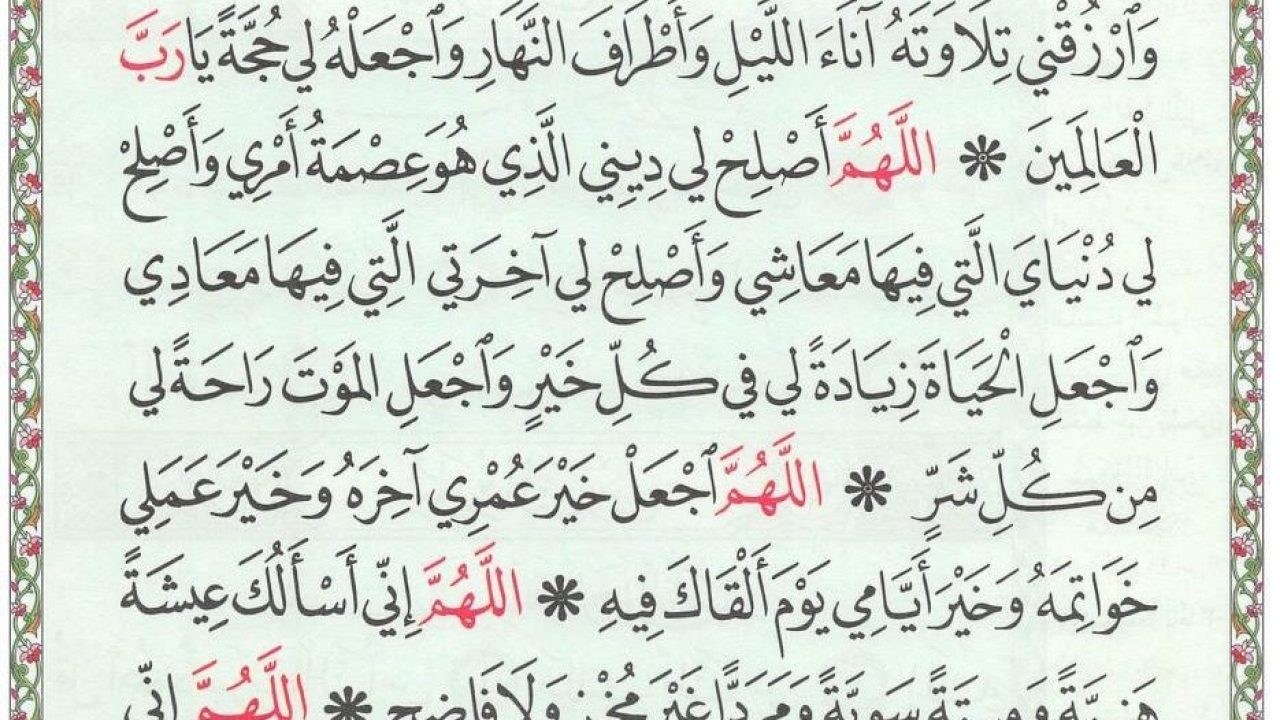 وَٱرْزُقْنِي تِلَاوَتَهُ آنَاءَ اللَّيْلِ وَأَطْرَافَ النَّهَارِ وَٱجْعَلْهُ لِي حُجَّةً يَا رَبَّ
الْعَالَمِينَ ❋ اللَّهُمَّ أَصْلِحْ لِي دِينِي الَّذِي هُوَ عِصْمَةُ أَمْرِي وَأَصْلِحْ
لِي دُنْيَايَ الَّتِي فِيهَا مَعَاشِي وَأَصْلِحْ لِي آخِرَتِي الَّتِي فِيهَا مَعَادِي
وَٱجْعَلِ الْحَيَاةَ زِيَادَةً لِي فِي كُلِّ خَيْرٍ وَٱجْعَلِ المَوْتَ رَاحَةً لِي
مِن كُلِّ شَرٍّ ❋ اللَّهُمَّ ٱجْعَلْ خَيْرَ عُمْرِي آخِرَهُ وَخَيْرَ عَمَلِي
خَوَاتِمَهُ وَخَيْرَ أَيَّامِي يَوْمَ أَلْقَاكَ فِيهِ ❋ اللَّهُمَّ إِنِّي أَسْأَلُكَ عِيشَةً
هَنِيَّةً وَمِيتَةً سَوِيَّةً وَمَرَدًّا غَيْرَ مُخْزٍ وَلَا فَاضِحٍ ❋ اللَّهُمَّ إِنِّي